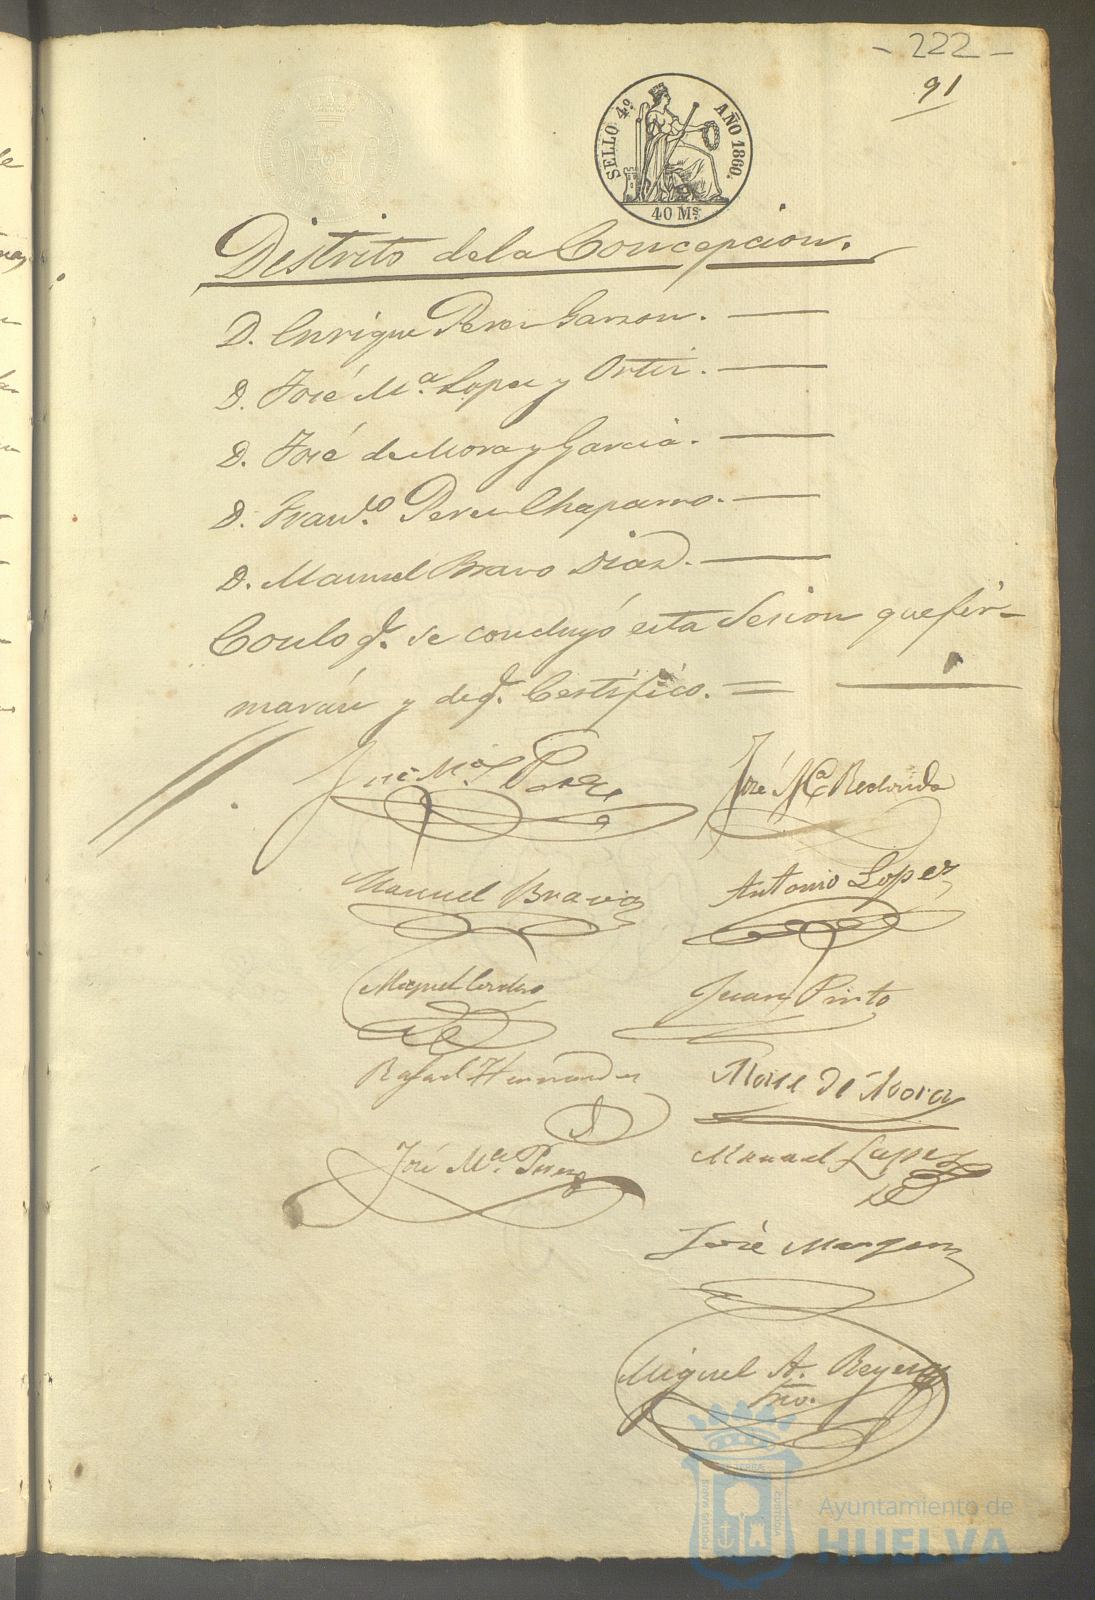 - 222 -
91
SELLO 4º. AÑO 1860.
40 Ms.
Distrito de la Concepcion.
D. Enrique Perez Garzon.
D. José Mª. Lopez y Ortiz.
D. José de Mora y Garcia.
D. Franco. Perez Chaparro.
D. Manuel Bravo Diaz.
Con lo q. se concluyó esta Sesion que fir-
marán y de q. Certifico. =
José Mª Redondo
Manuel Bravo
Antonio Lopez
Miguel Cordero
Juan Pinto
Rafael Hernandez
José de Mora
José Mª. Perez
Manuel Lopez
José
Miguel A. Reyes
Srio.
PORTUS MARIS ET TERRÆ CUSTODIA
Ayuntamiento de
HUELVA